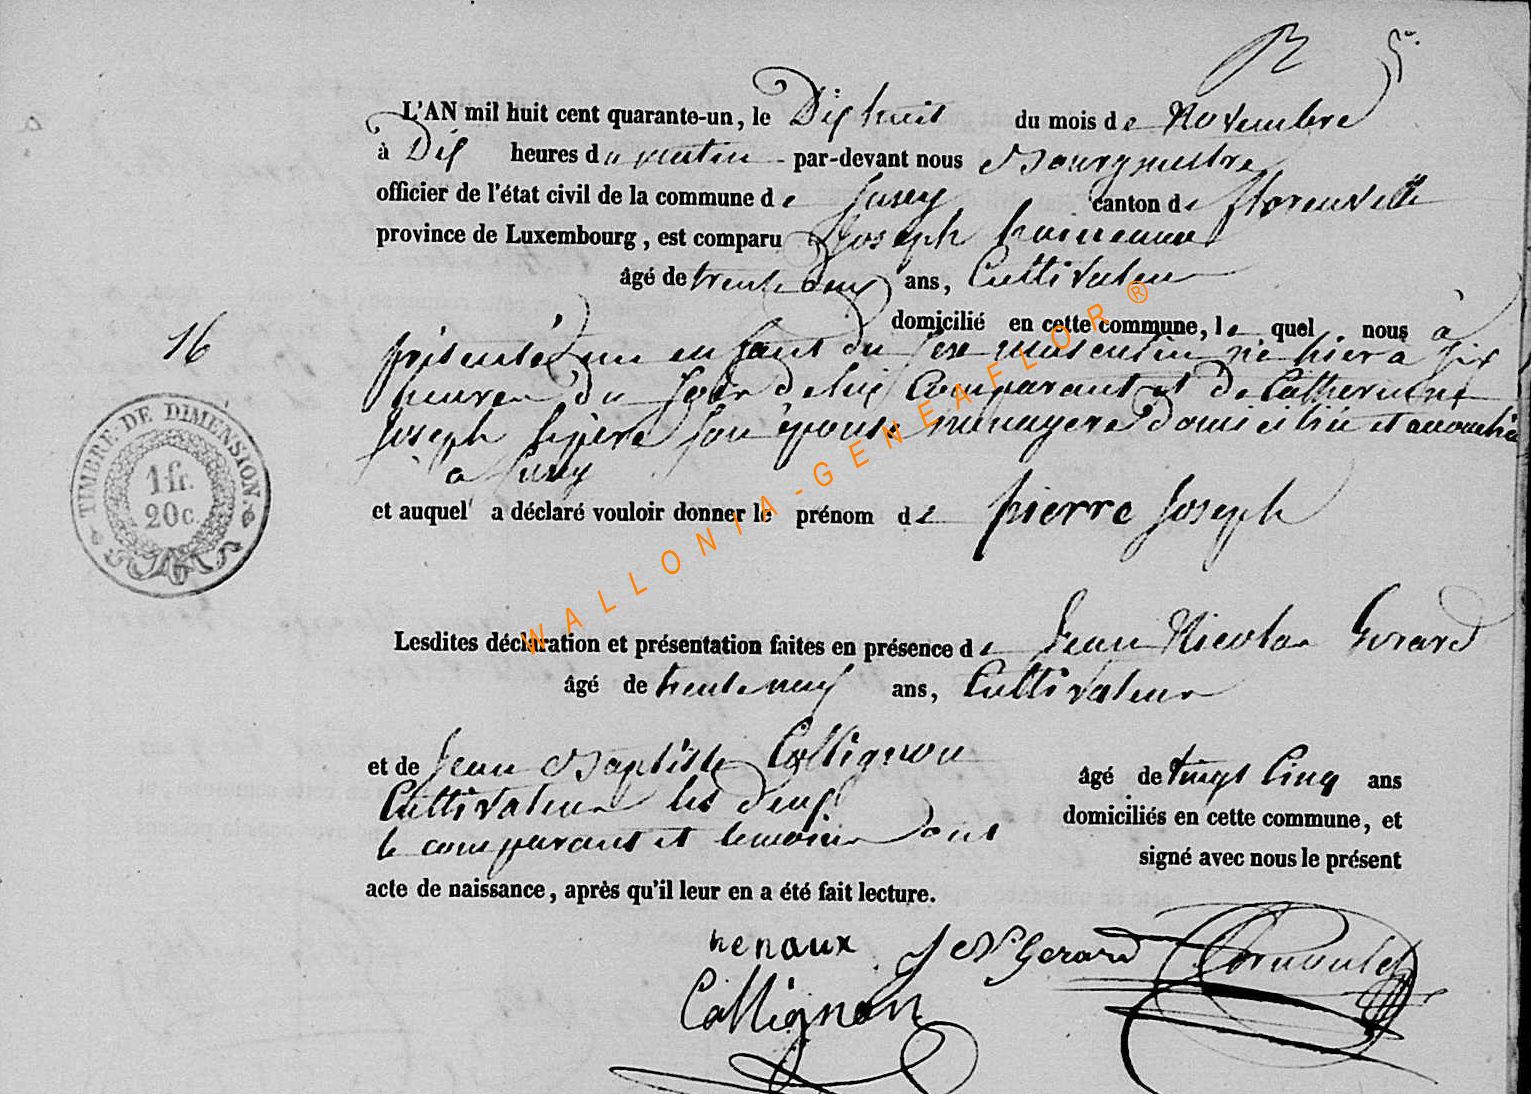 5
L'AN mil huit cent quarante-un, le Dix huit du mois de Novembre
à Dix heures du matin par-devant nous Bourgmestre
officier de l'état civil de la commune de Suxy canton de florenville
province de Luxembourg, est comparu Joseph
âgé de trente deux ans, Cultivateur
domicilié en cette commune, le quel nous à
16
présenté un enfant du sexe masculin né hier à six
heures du Soir de lui Comparant et de Catherine
Joseph son épouse menagere domiciliée et accouchée
a Suxy
TIMBRE DE DIMENSION.
1 fr.
20c.
et auquel a déclaré vouloir donner le prénom de pierre Joseph
WALLONIA-GENEAFLOR®
Lesdites déclaration et présentation faites en présence de Jean Nicolas Gerard
âgé de trente neuf ans, Cultivateur
et de Jean Baptiste Collignon âgé de vingt Cinq ans
Cultivateur les deux domiciliés en cette commune, et
le comparant et temoins ont signé avec nous le présent
acte de naissance, après qu'il leur en a été fait lecture.
henaux J N Gerard
Collignon